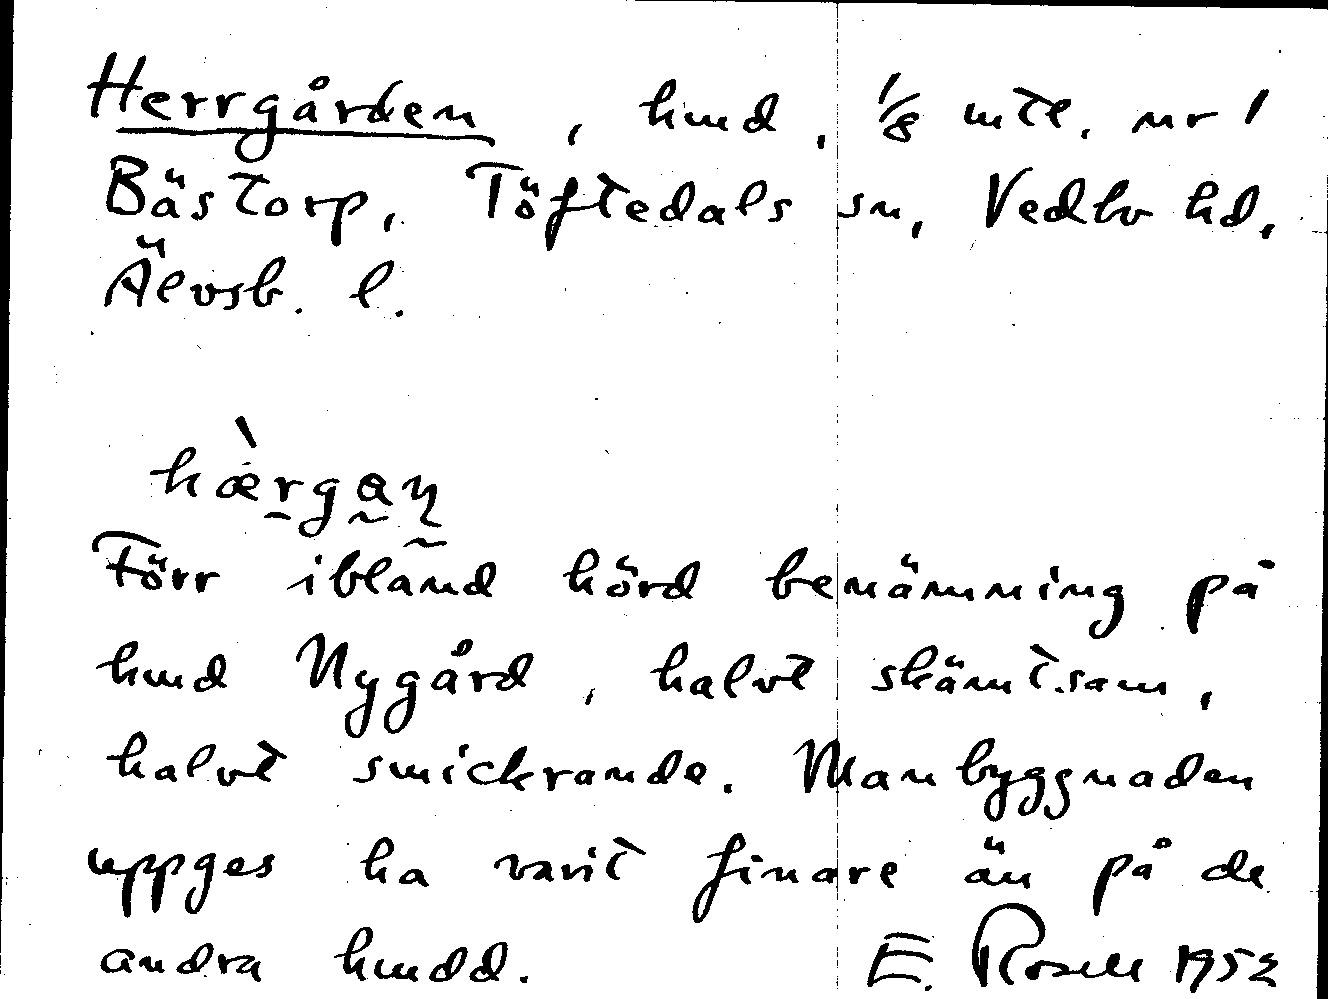 Herrgården, hmd, 1/8 mtl. nr 1
Bästorp, Töftedals sn, Vedbo hd,
Älvsb. l.
hærgan
Förr ibland hörd benämning på
hmd Nygård, halvt skämtsam,
halvt smickrande. Manbyggnaden
uppges ha varit finare än på de
andra hmdd. E. Rosell 1952